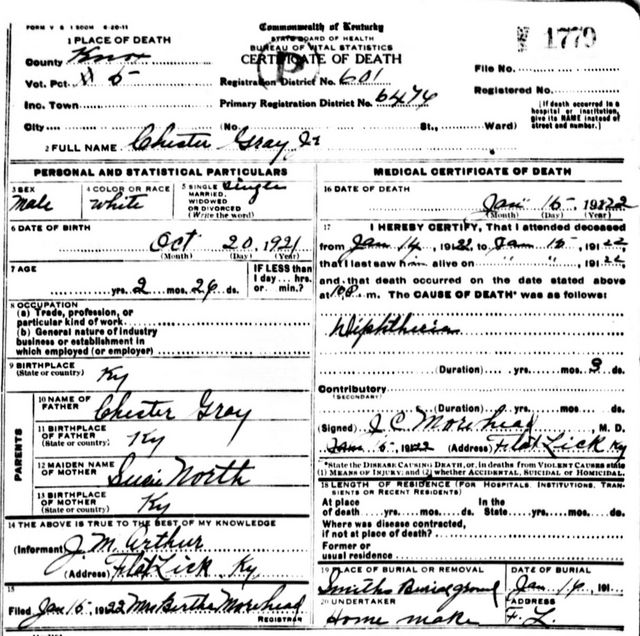 FORM V S 1 500M 6-20-11
Commonwealth of Kentucky
STATE BOARD OF HEALTH
BUREAU OF VITAL STATISTICS
CERTIFICATE OF DEATH
P
1779
1 PLACE OF DEATH
County Knox
Vot. Pct. 5
Inc. Town
City (No. St., Ward)
Registration District No. 601
Primary Registration District No. 6474
File No.
Registered No.
[If death occurred in a hospital or institution, give its NAME instead of street and number.]
2 FULL NAME Chester Gray Jr
PERSONAL AND STATISTICAL PARTICULARS
3 SEX
Male
4 COLOR OR RACE
White
5 SINGLE MARRIED, WIDOWED OR DIVORCED (Write the word)
Single
6 DATE OF BIRTH
Oct 20, 1921
(Month) (Day) (Year)
7 AGE
yrs. 2 mos. 26 ds.
IF LESS than 1 day... hrs. or min.?
8 OCCUPATION
(a) Trade, profession, or particular kind of work
(b) General nature of industry business or establishment in which employed (or employer)
9 BIRTHPLACE
(State or country) Ky
PARENTS
10 NAME OF FATHER Chester Gray
11 BIRTHPLACE OF FATHER (State or country) Ky
12 MAIDEN NAME OF MOTHER Susie North
13 BIRTHPLACE OF MOTHER (State or country) Ky
14 THE ABOVE IS TRUE TO THE BEST OF MY KNOWLEDGE
(Informant) J. M. Arthur
(Address) Flat Lick Ky
15
Filed Jan 15, 1922 Mrs Bertha Morehead
REGISTRAR
MEDICAL CERTIFICATE OF DEATH
16 DATE OF DEATH
Jan 15 1922
(Month) (Day) (Year)
17 I HEREBY CERTIFY, That I attended deceased
from Jan 14, 1922 to Jan 15, 1922
that I last saw him alive on " ", 1922
and that death occurred on the date stated above
at m. The CAUSE OF DEATH* was as follows:
Diphtheria
(Duration) yrs. mos. 3 ds.
Contributory
(SECONDARY)
(Duration) yrs. mos. ds.
(Signed) J. C. Morehead, M. D.
Jan 15 1922 (Address) Flat Lick Ky
*State the DISEASE CAUSING DEATH, or, in deaths from VIOLENT CAUSES state
(1) MEANS OF INJURY; and (2) whether ACCIDENTAL, SUICIDAL or HOMICIDAL.
18 LENGTH OF RESIDENCE (FOR HOSPITALS, INSTITUTIONS, TRANSIENTS OR RECENT RESIDENTS)
At place of death yrs. mos. ds. In the State yrs. mos. ds.
Where was disease contracted, if not at place of death?
Former or usual residence
19 PLACE OF BURIAL OR REMOVAL
Smiths Burial ground
DATE OF BURIAL
Jan 16, 191
20 UNDERTAKER
Home make
ADDRESS
F. L.